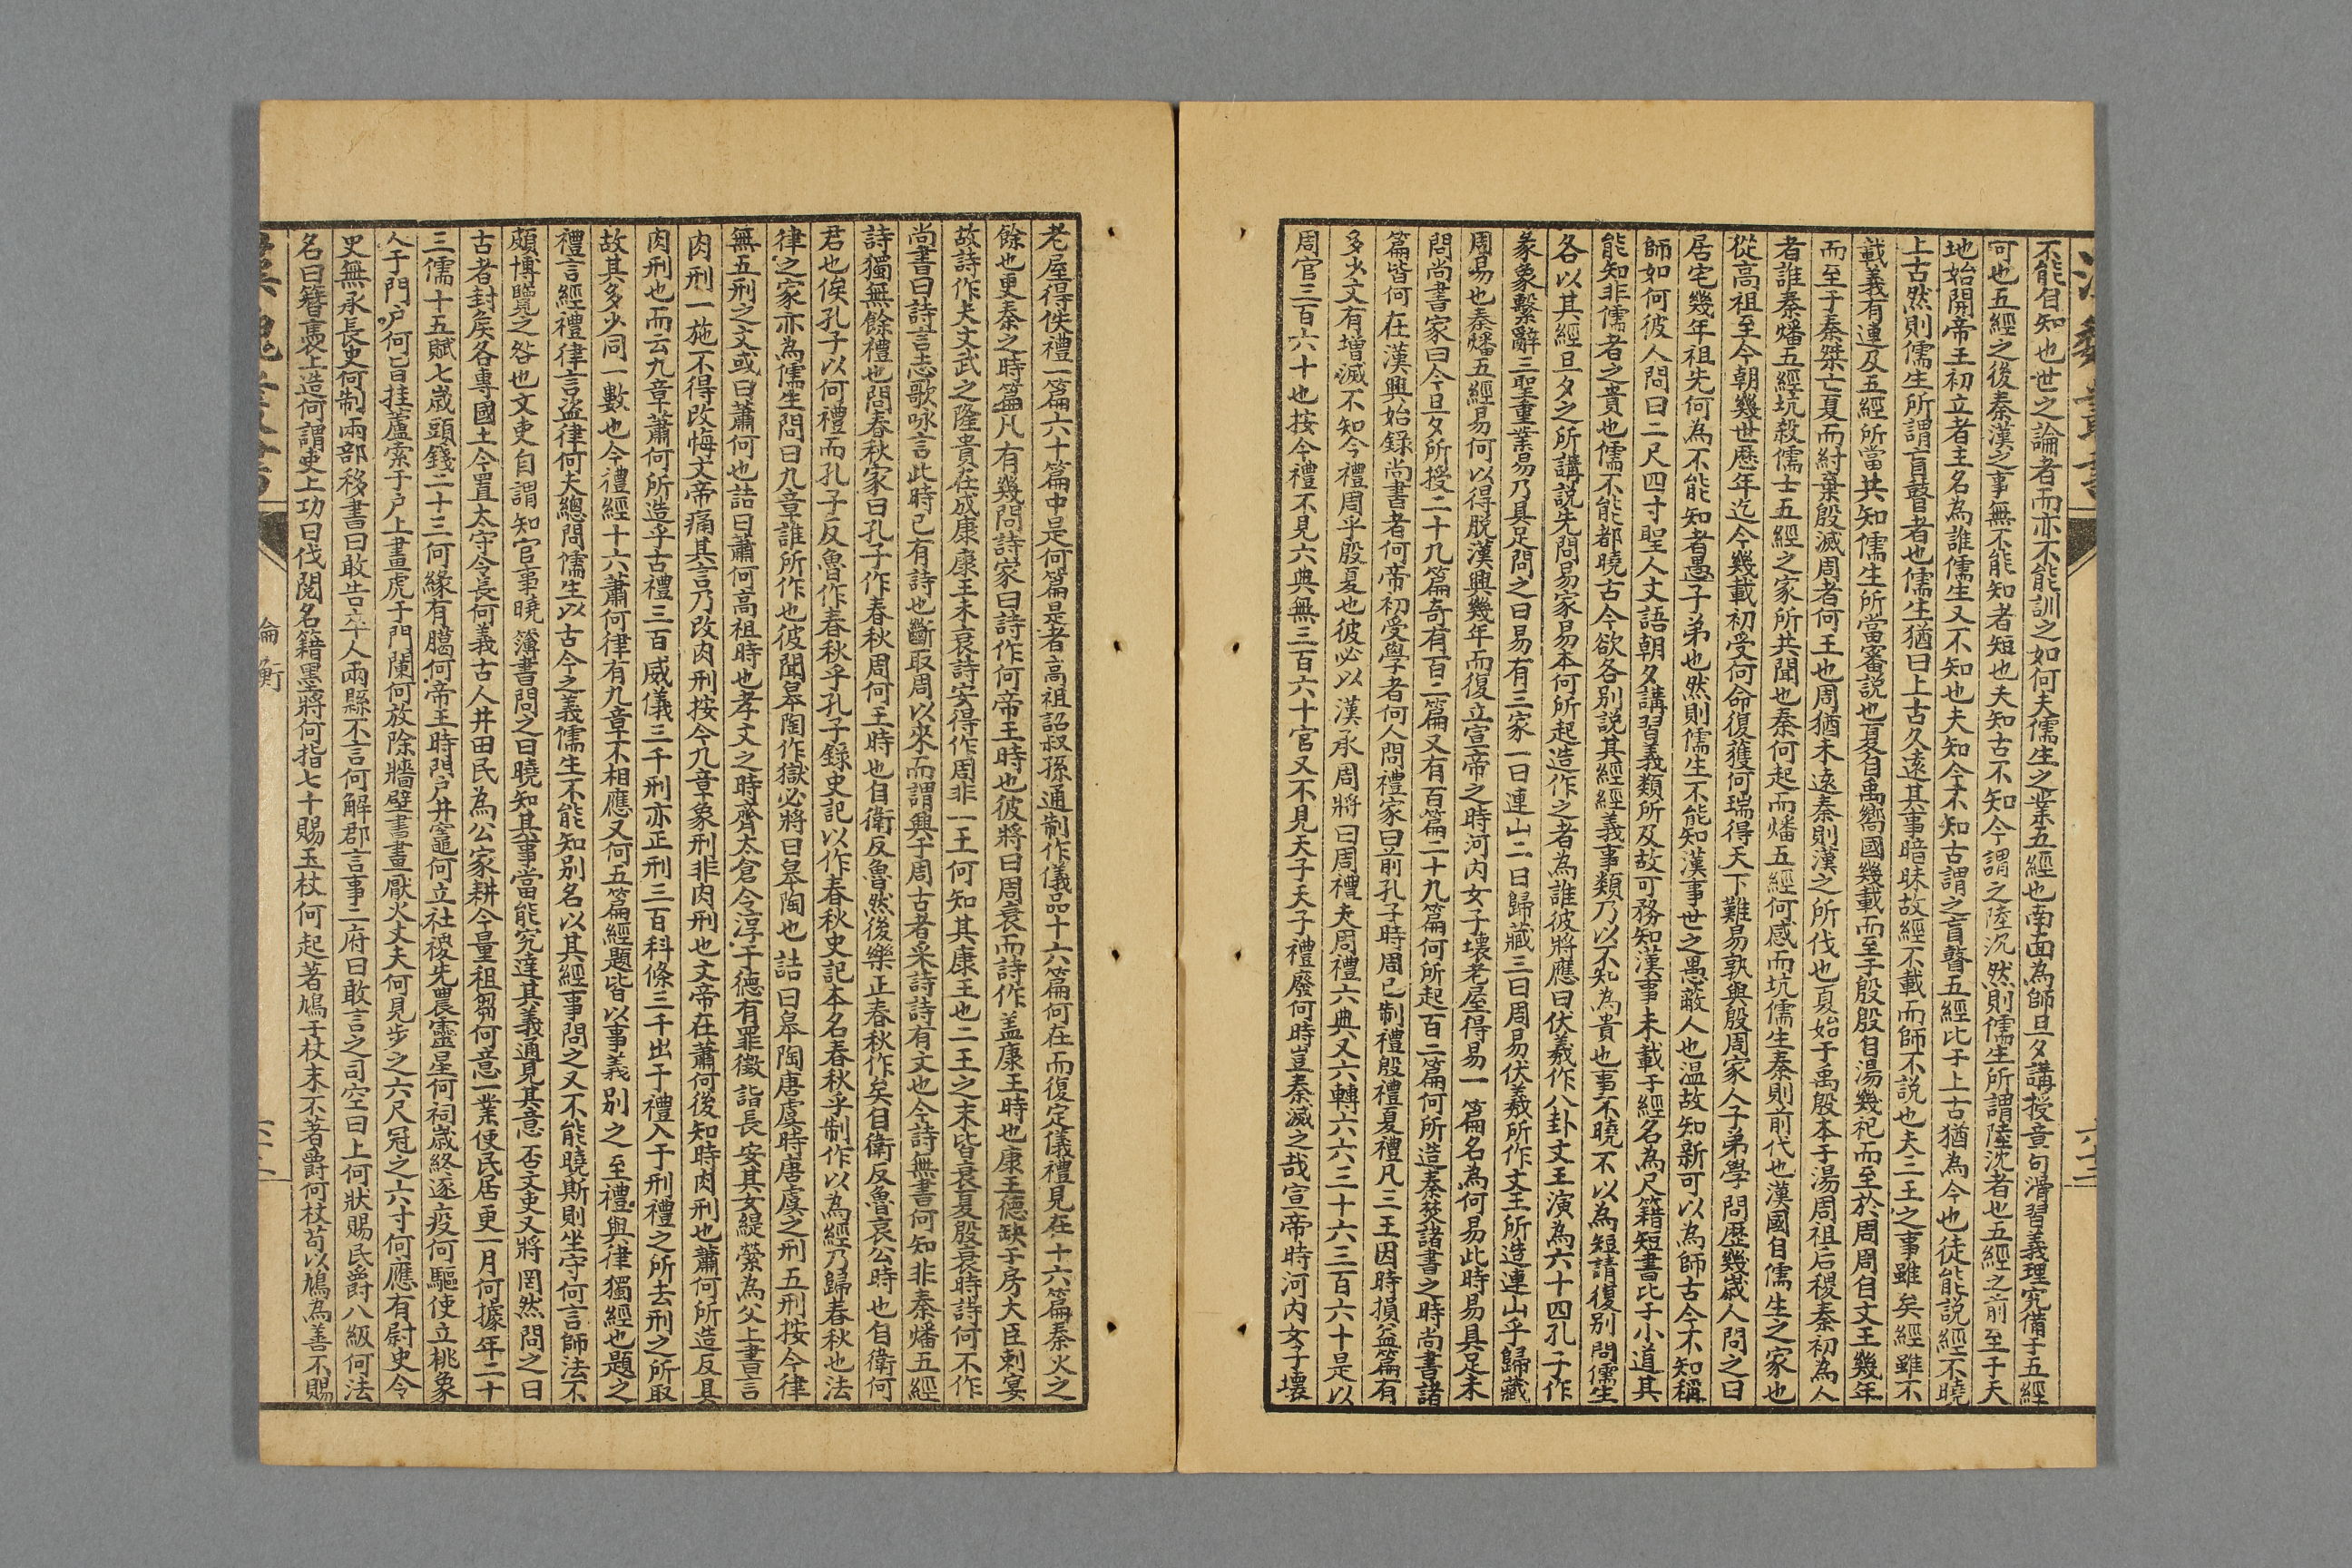 不能自知也世之論者而亦不能訓之如何夫儒生之業五經也南面為師旦夕講授章句滑習義理究備于五經
可也五經之後秦漢之事無不能知者短也夫知古不知今謂之陸沉然則儒生所謂陸沈者也五經之前至于天
地始開帝王初立者主名為誰儒生又不知也夫知今不知古謂之盲瞽五經比于上古猶為今也徒能說經不曉
上古然則儒生所謂盲瞽者也儒生猶曰上古久遠其事暗昧故經不載而師不說也夫三王之事雖矣經雖不
載義有連及五經所當共知儒生所當審說也夏自禹嚮國幾載而至于殷殷自湯幾祀而至於周周自文王幾年
而至于秦桀亡夏而紂棄殷滅周者何王也周猶未遠秦則漢之所伐也夏始于禹殷本于湯周祖后稷秦初為人
者誰秦燔五經坑殺儒士五經之家所共聞也秦何起而燔五經何感而坑儒生秦則前代也漢國自儒生之家也
從高祖至今朝幾世歷年迄今幾載初受何命復獲何瑞得天下難易孰與殷周家人子弟學問歷幾歲人問之曰
居宅幾年祖先何為不能知者愚子弟也然則儒生不能知漢事世之愚蔽人也溫故知新可以為師古今不知稱
師如何彼人問曰二尺四寸聖人文語朝夕講習義類所及故可務知漢事未載于經名為尺籍短書比于小道其
能知非儒者之貴也儒不能都曉古今欲各別說其經經義事類乃以不知為貴也事不曉不以為短請復別問儒生
各以其經旦夕之所講說先問易家易本何所起造作之者為誰彼將應曰伏羲作八卦文王演為六十四孔子作
彖象繫辭三聖重業易乃具足問之曰易有三家一曰連山二曰歸藏三曰周易伏羲所作文王所造連山乎歸藏
周易也秦燔五經易何以得脫漢興幾年而復立宣帝之時河內女子壞老屋得易一篇名為何易此時易具足未
問尚書家曰今旦夕所授二十九篇奇有百二篇又有百篇二十九篇何所起百二篇何所造秦焚諸書之時尚書諸
篇皆何在漢興始錄尚書者何帝初受學者何人問禮家曰前孔子時周已制禮殷禮夏禮凡三王因時損益篇有
多少文有增減不知今禮周乎殷夏也彼必以漢承周將曰周禮夫周禮六典又六轉六六三十六三百六十是以
周官三百六十也按今禮不見六典無三百六十官又不見天子天子禮廢何時豈秦滅之哉宣帝時河內女子壞
老屋得佚禮一篇六十篇中是何篇是者高祖詔叔孫通制作儀品十六篇何在而復定儀禮見在十六篇秦火之
餘也更秦之時篇凡有幾問詩家曰詩作何帝王時也彼將曰周衰而詩作蓋康王時也康王德缺于房大臣刺宴
故詩作夫文武之隆貴在成康康王未衰詩安得作周非一王何知其康王也二王之末皆衰夏殷衰時詩何不作
尚書曰詩言志歌咏言此時已有詩也斷取周以來而謂興于周古者采詩詩有文也今詩無書何知非秦燔五經
詩獨無餘禮也問春秋家曰孔子作春秋周何王時也自衛反魯然後樂正春秋作矣自衛反魯哀公時也自衛何
君也俟孔子以何禮而孔子反魯作春秋乎孔子錄史記以作春秋史記本名春秋乎制作以為經乃歸春秋也法
律之家亦為儒生問曰九章誰所作也彼聞皋陶作獄必將曰皋陶也詰曰皋陶唐虞時唐虞之刑五刑按今律
無五刑之文或曰蕭何也詰曰蕭何高祖時也孝文之時齊太倉令淳于德有罪徵詣長安其女緹縈為父上書言
肉刑一施不得改悔文帝痛其言乃改肉刑按今九章象刑非肉刑也文帝在蕭何後知時肉刑也蕭何所造反具
肉刑也而云九章蕭何所造乎古禮三百威儀三千刑亦正刑三百科條三千出于禮入于刑禮之所去刑之所取
故其多少同一數也今禮經十六蕭何律有九章不相應又何五篇經題皆以事義別之至禮與律獨經也題之
禮言經禮律言盜律何夫總問儒生以古今之義儒生不能知別名以其經事問之又不能曉斯則坐守何言師法不
頗博覽之咎也文吏自謂知官事曉簿書問之曰曉知其事當能究達其義通見其意否文吏又將罔然問之曰
古者封矦各專國土今置太守令長何義古人井田民為公家耕今量租芻何意一業使民居更一月何據年二十
三儒十五賦七歲頭錢二十三何緣有臈何帝王時門戶井竈何立社稷先農靈星何祠歲終逐疫何驅使立桃象
人于門戶何㫖挂蘆索于戶上畫虎于門闌何放除牆壁書畫厭火丈夫何見步之六尺冠之六寸何應有尉史令
史無承長史何制兩部移書曰敢告卒人兩縣不言何解郡言事二府曰敢言之司空曰上何狀賜民爵八級何法
名曰簪褭上造何謂吏上功曰伐閱名籍墨將何指七十賜玉杖何起著鳩于杖末不著爵何杖苟以鳩為善不賜
論衡